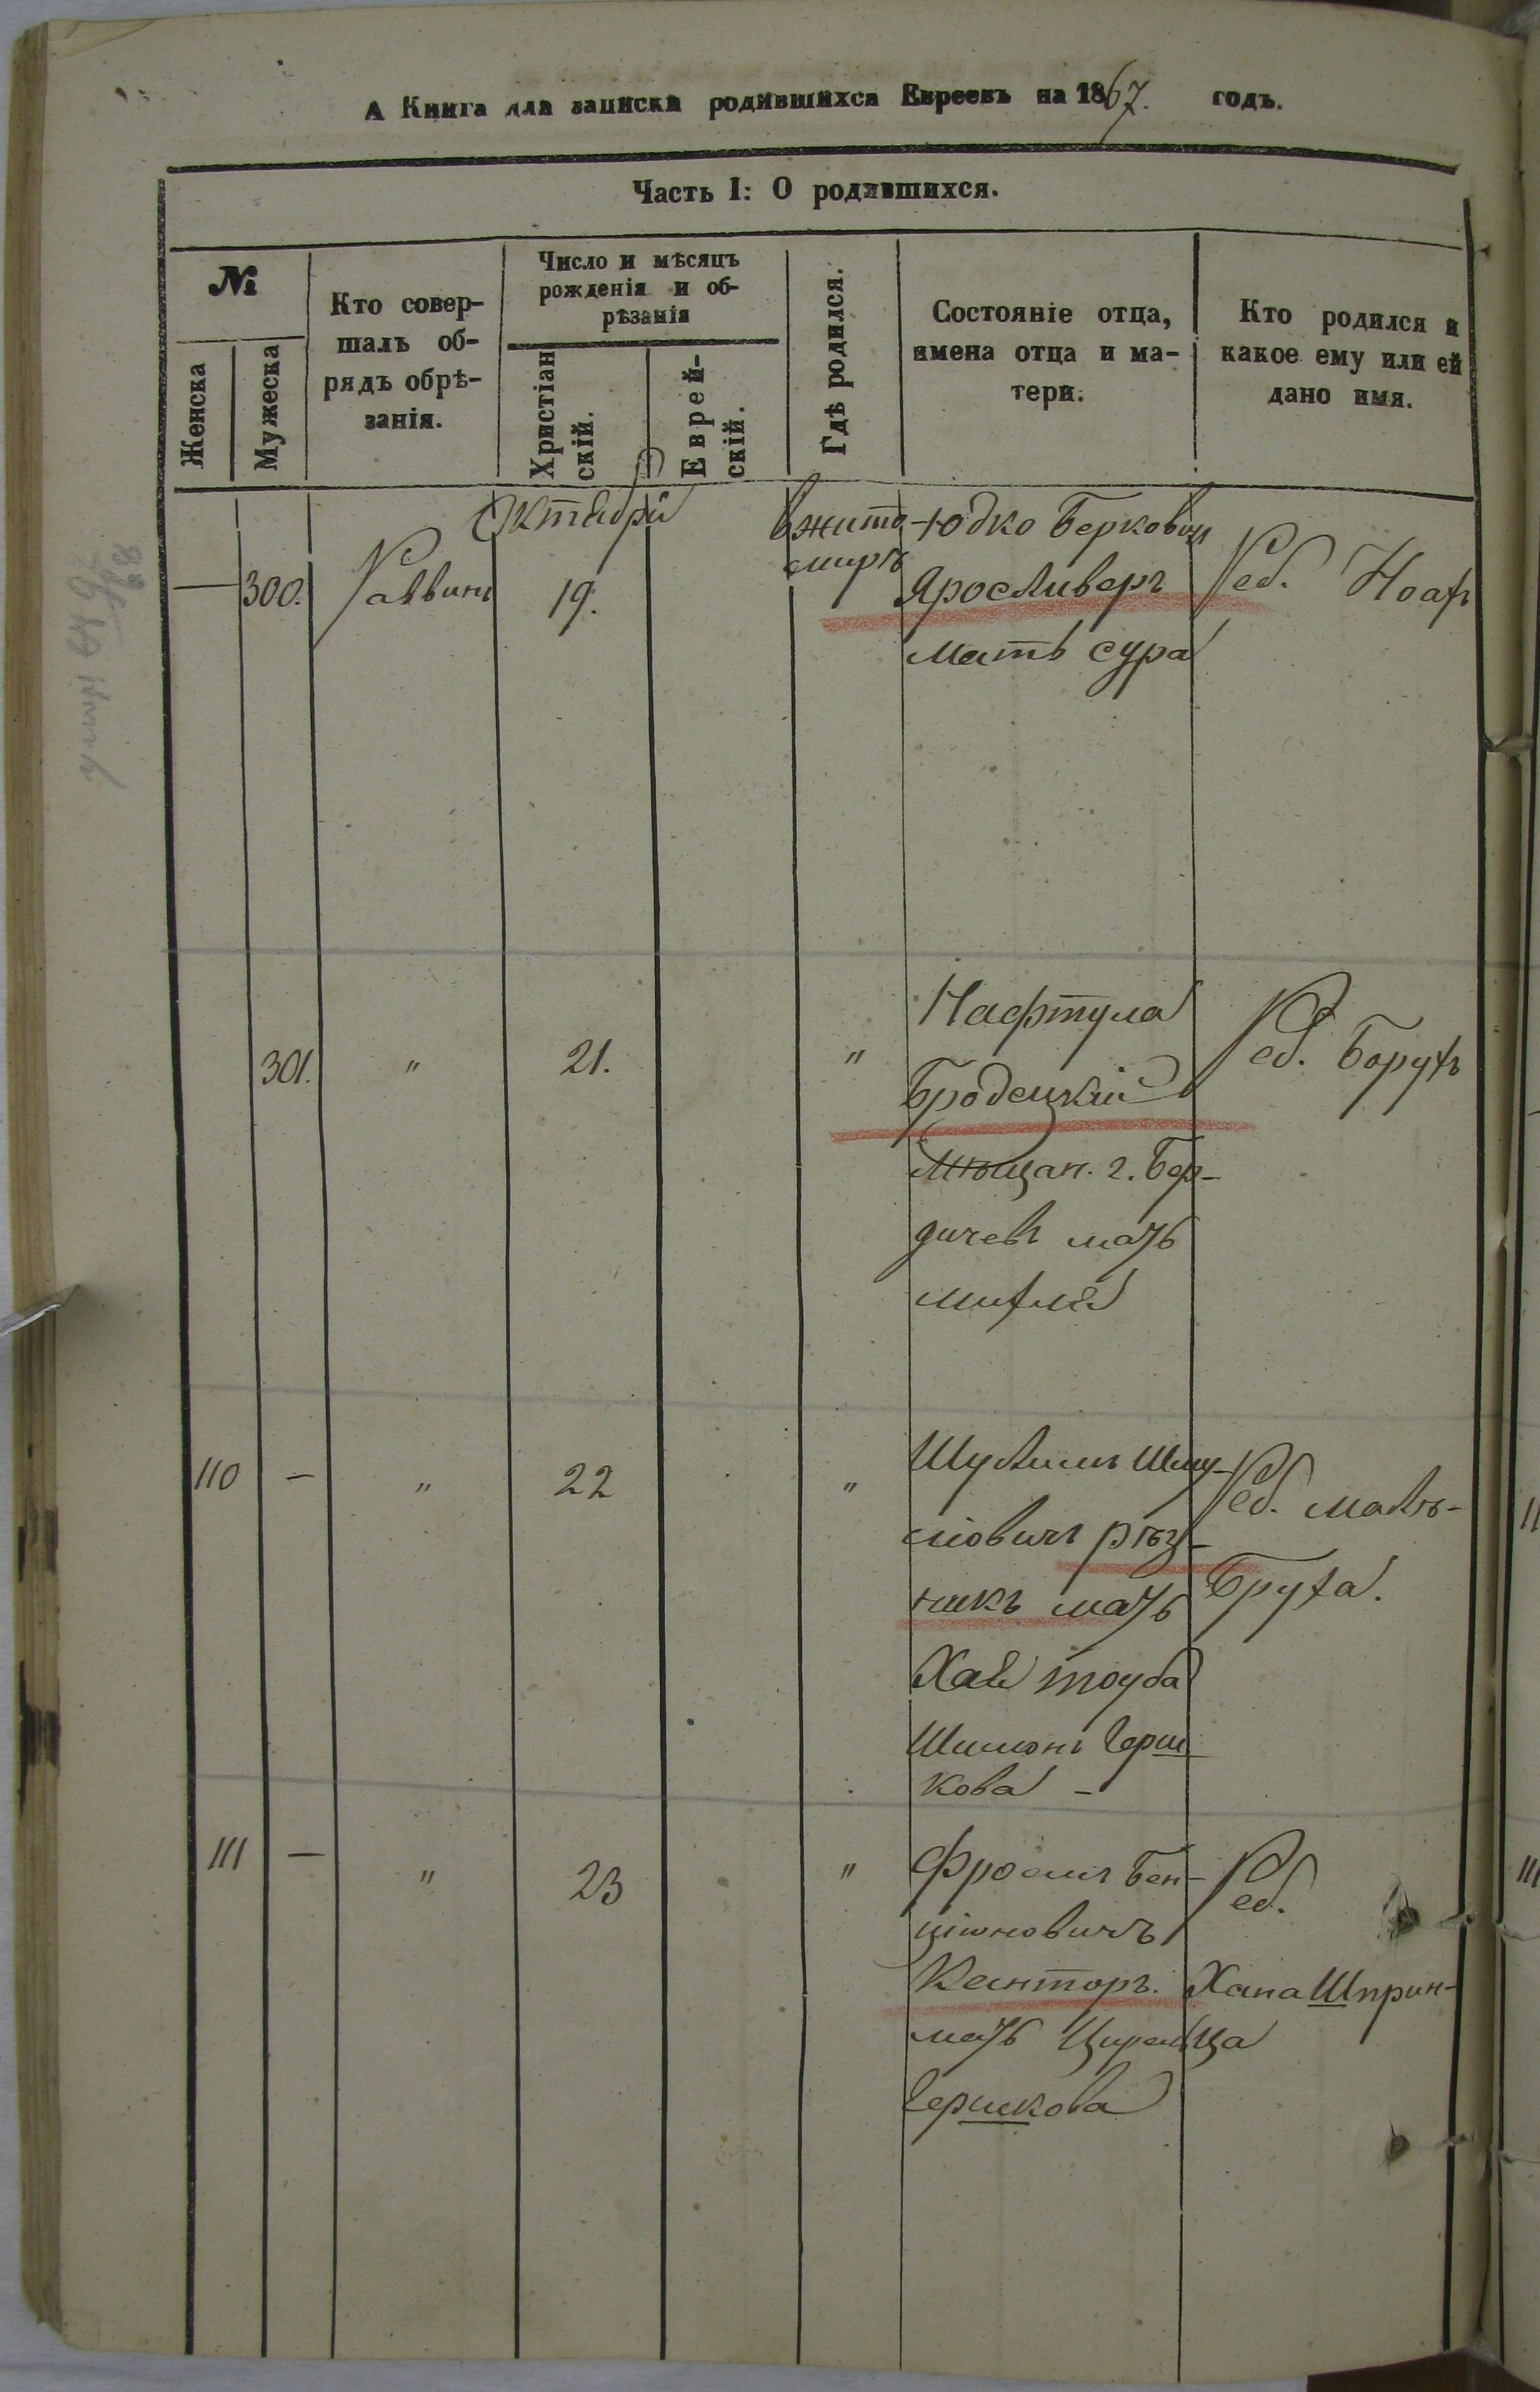 А Книга для записки родившихся Евреевъ на 1867. годъ.
Часть I: О родившихся.
№
Женска
Мужеска
Кто совер-
шалъ об-
рядъ обрѣ-
занія.
Число и мѣсяцъ
рожденія и об-
рѣзанія
Христіан
скій.
Еврей-
скій.
Гдѣ родился.
Состояніе отца,
имена отца и ма-
тери.
Кто родился и
какое ему или ей
дано имя.
Октября
— 300. Раввинъ 19.
в жито
мирѣ
Юдко Берковичъ
Ярославеръ
мать сура
Реб. Ноахъ
301. " 21. "
Нафтула
Бродецкій
Мѣщан. г. Бер-
дичевъ мать
михля
Реб. Борухъ
110 — " 22 "
Шулимъ Шму-
ліовичъ рѣз-
никъ мать
Хая тоуба
Шимонъ Герш
кова —
Реб. малъ-
Бруха.
111 — " 23 "
Фроимъ Бен-
ціоновичъ
Канторъ.
мать
Гершкова
Реб.
Хана Шприн-
ца